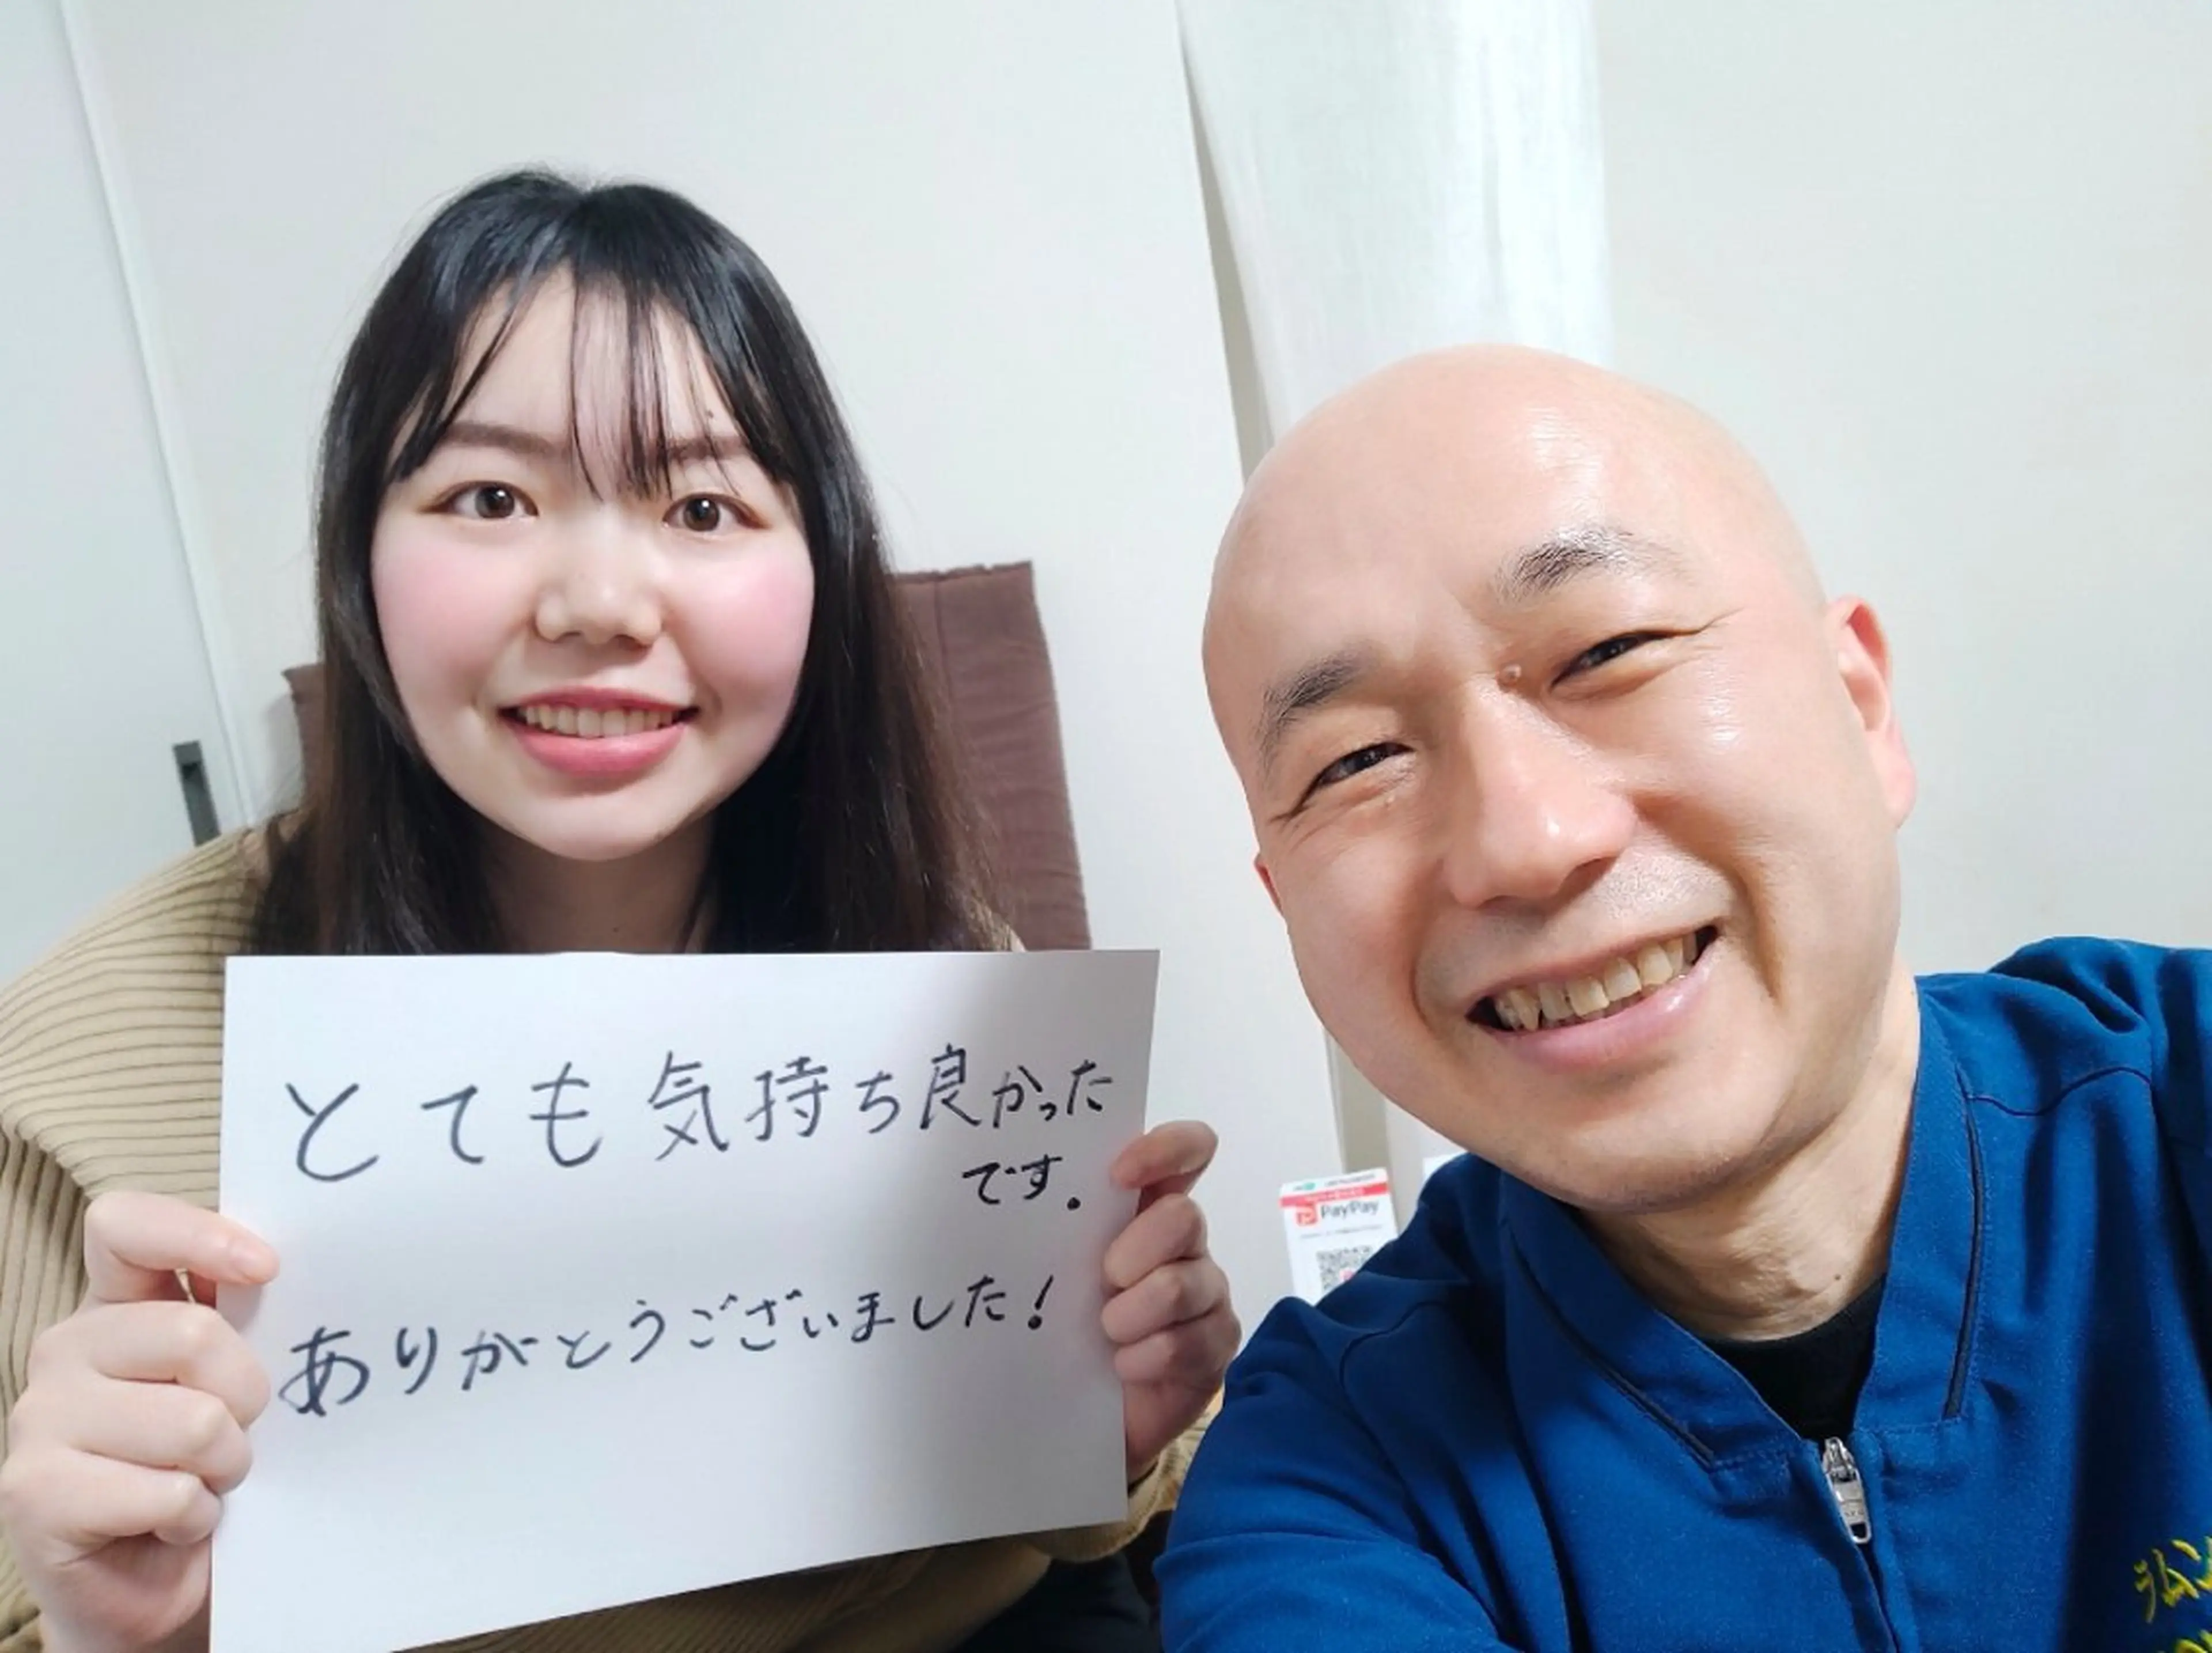 とても気持ち良かった
です。
ありがとうございました!
PayPay